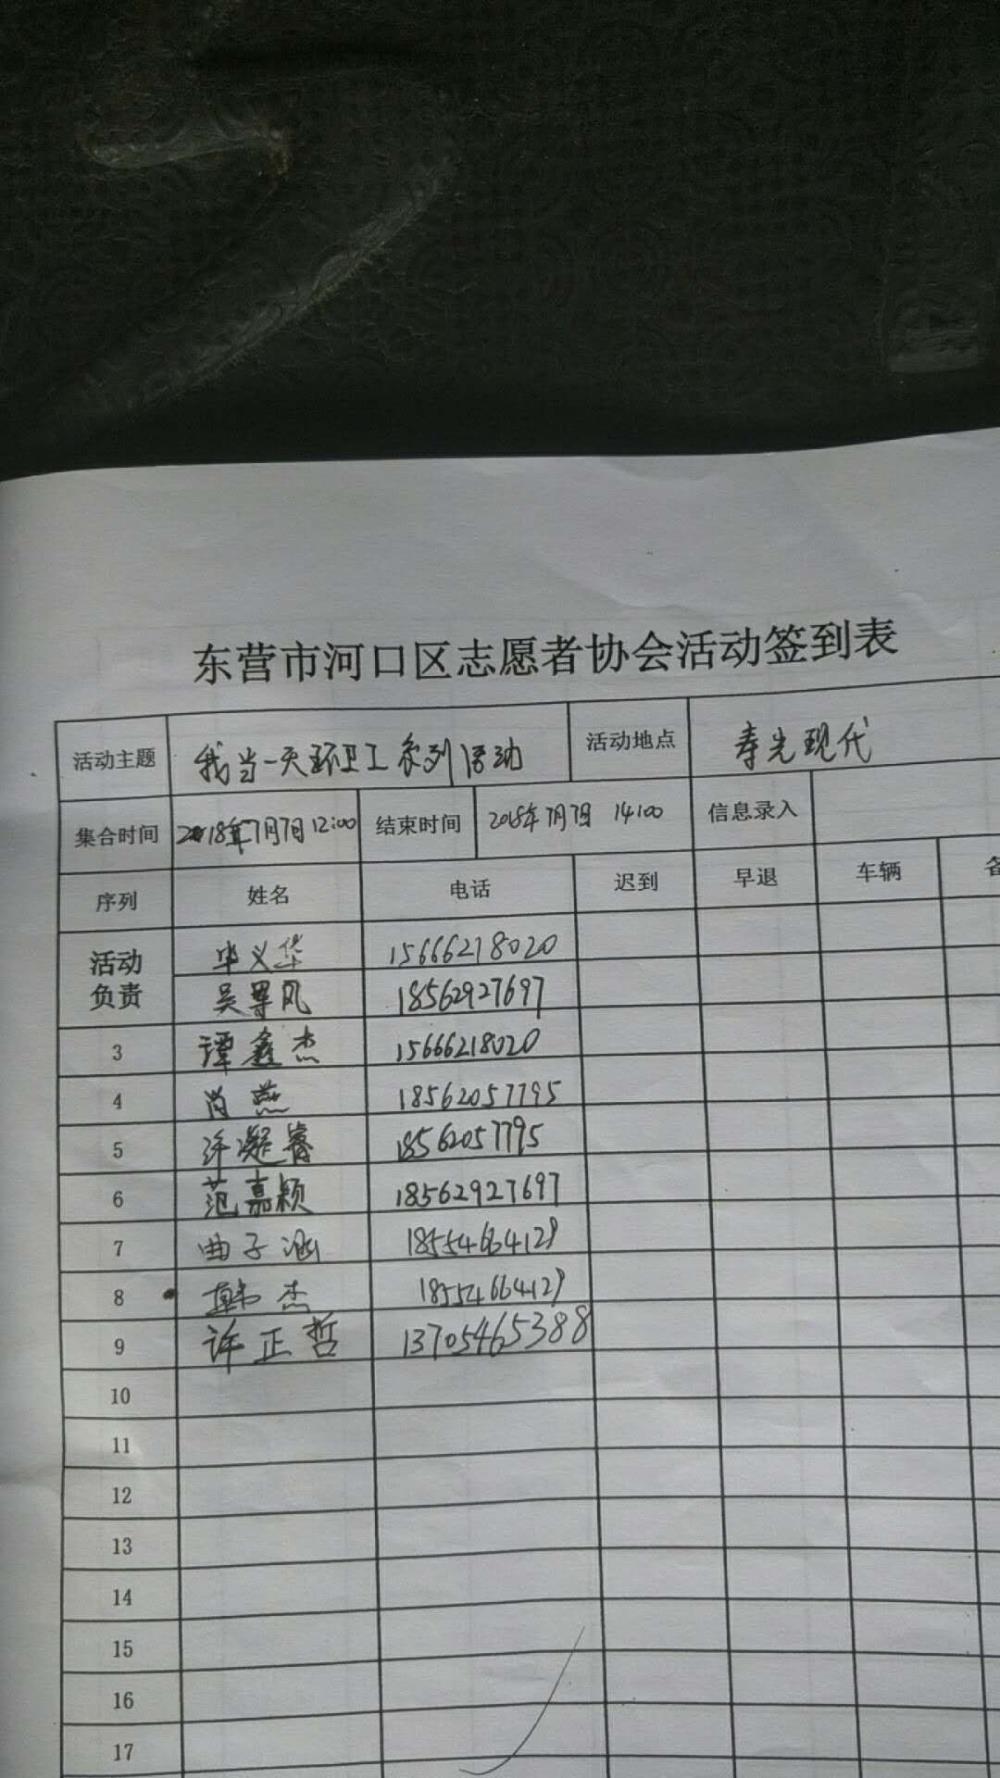 东营市河口区志愿者协会活动签到表
活动主题 我当一天环卫工系列活动 活动地点 寿光现代
集合时间 2018年7月7日12:00 结束时间 2018年7月7日 14:00 信息录入
序列 姓名 电话 迟到 早退 车辆 备
活动负责 毕义华 15666218020
吴翠凤 18562927697
3 谭鑫杰 15666218020
4 尚燕 18562057795
5 许凝睿 18562057795
6 范嘉颖 18562927697
7 曲子涵 18554664129
8 韩杰 18554664129
9 许正哲 13705465388
10
11
12
13
14
15
16
17